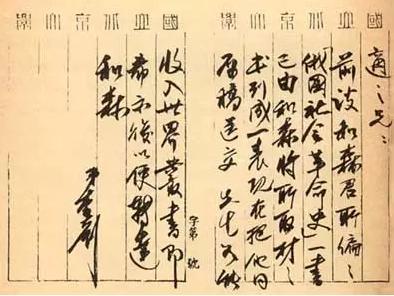 國立北京大學
適之兄：
前談和森君所編之
「俄國社會革命史」一書
已由和森將所取材之
書列成一表現在把他同
原稿送交 先生可能
字第 號
國立北京大學
收入世界叢書即
希示復以便轉達
和森
弟大釗